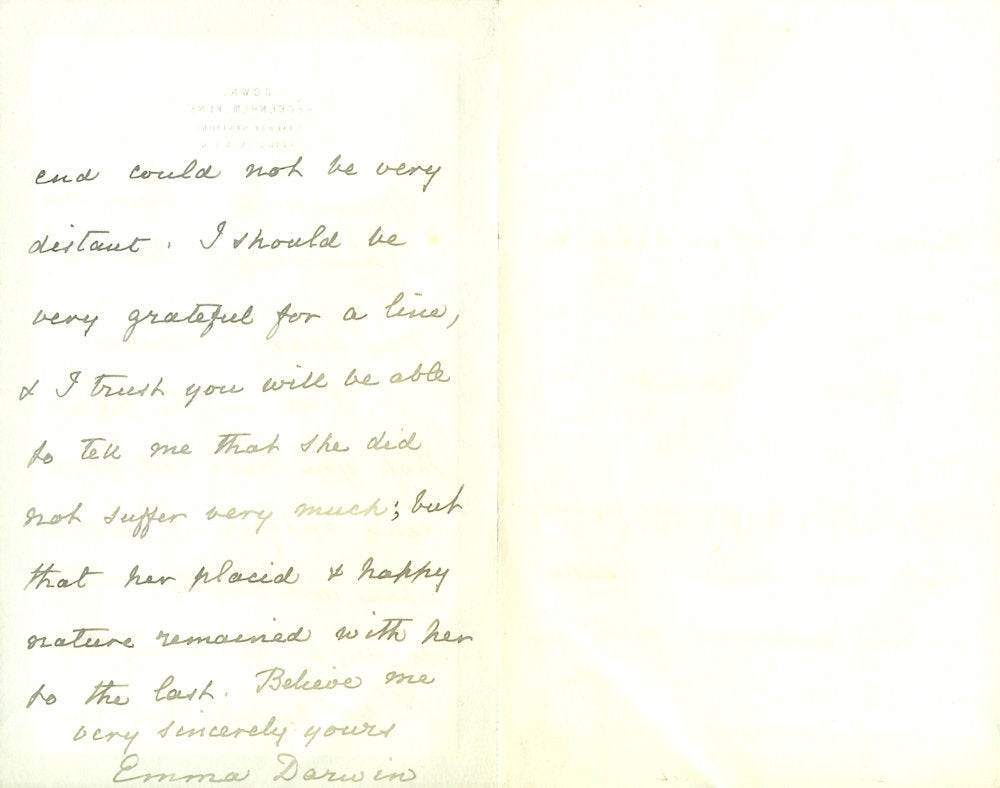 end could not be very
distant. I should be
very grateful for a line,
& I trust you will be able
to tell me that she did
not suffer very much; but
that her placid & happy
nature remained with her
to the last. Believe me
very sincerely yours
Emma Darwin